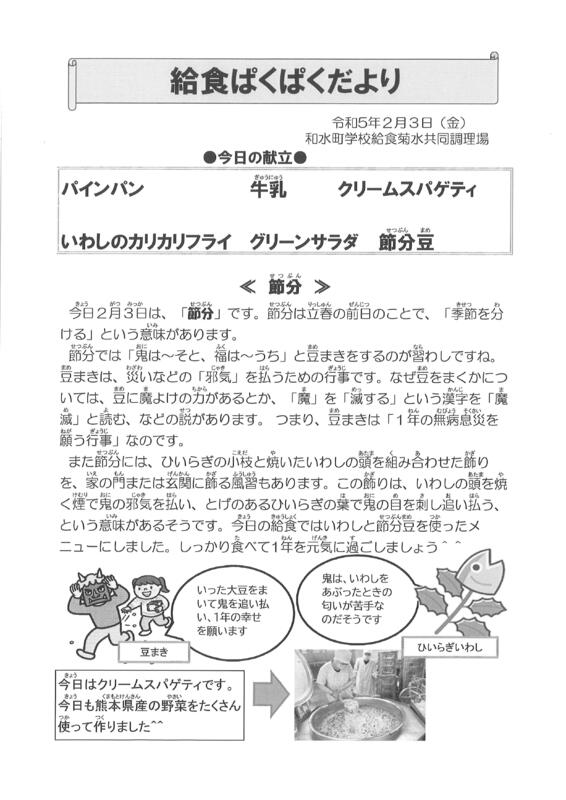 給食ぱくぱくだより
令和5年2月3日（金）
和水町学校給食菊水共同調理場
●今日の献立●
パインパン　牛乳　クリームスパゲティ
いわしのカリカリフライ　グリーンサラダ　節分豆
≪ 節分 ≫
今日2月3日は、「節分」です。節分は立春の前日のことで、「季節を分
ける」という意味があります。
節分では「鬼は～そと、福は～うち」と豆まきをするのが習わしですね。
豆まきは、災いなどの「邪気」を払うための行事です。なぜ豆をまくかにつ
いては、豆に魔よけの力があるとか、「魔」を「滅する」という漢字を「魔
滅」と読む、などの説があります。 つまり、豆まきは「1年の無病息災を
願う行事」なのです。
また節分には、ひいらぎの小枝と焼いたいわしの頭を組み合わせた飾り
を、家の門または玄関に飾る風習もあります。この飾りは、いわしの頭を焼
く煙で鬼の邪気を払い、とげのあるひいらぎの葉で鬼の目を刺し追い払う、
という意味があるそうです。今日の給食ではいわしと節分豆を使ったメ
ニューにしました。しっかり食べて1年を元気に過ごしましょう＾＾
いった大豆をま
いて鬼を追い払
い、1年の幸せ
を願います
鬼は、いわしを
あぶったときの
匂いが苦手な
のだそうです
豆まき
ひいらぎいわし
今日はクリームスパゲティです。
今日も熊本県産の野菜をたくさん
使って作りました^^